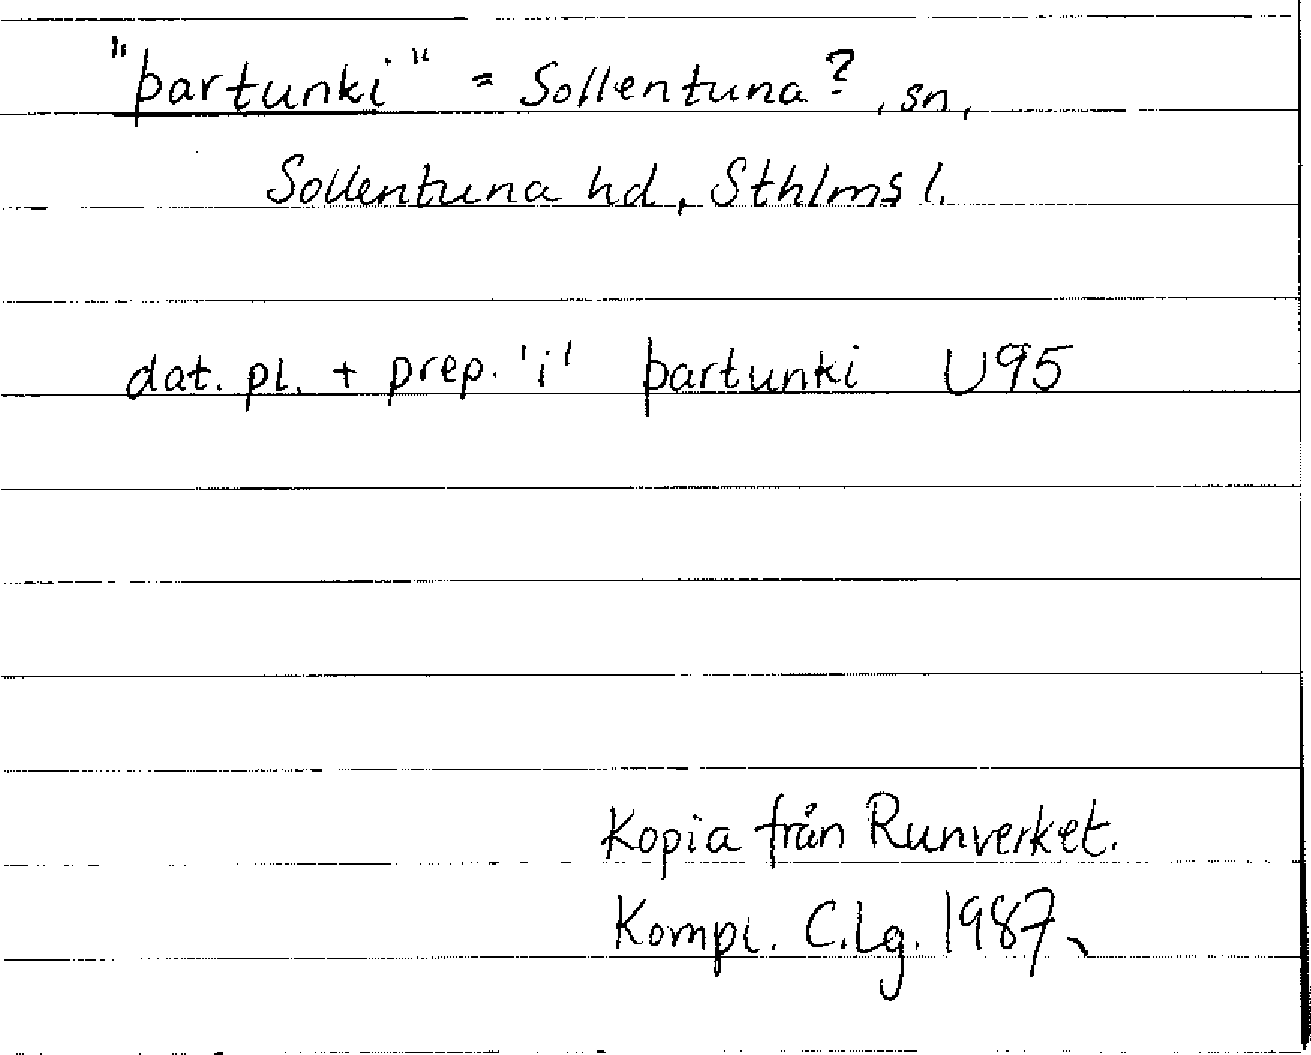 "þartunki" = Sollentuna?, sn,
Sollentuna hd, Sthlms l.
dat. pl. + prep. 'i' þartunki U95
Kopia från Runverket.
Kompl. C.Lg. 1987.